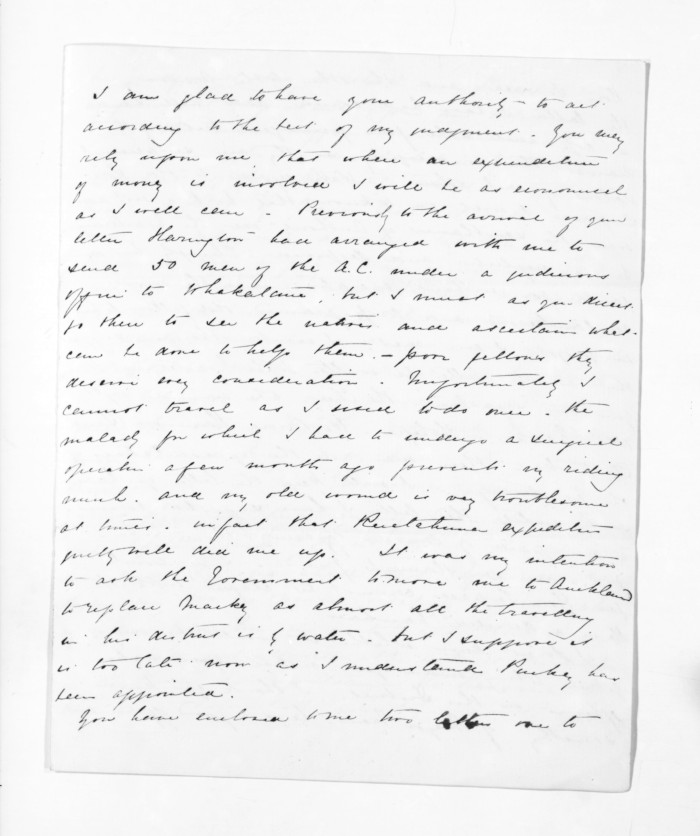 I am glad to have your authority to act
according to the best of my judgment. You may
rely upon me, that where an expenditure
of money is involved I will be as economical
as I well can. Previously to the arrival of your
letter Harington had arranged with me to
send 50 men of the A.C. under a judicious
officer to Whakatane, but I must as you direct
go there to see the natives and ascertain what
can be done to help them. - poor fellows they
deserve every consideration. Unfortunately I
cannot travel as I used to do once. the
malady for which I had to undergo a surgical
operation a few months ago prevents my riding
much. and my old wound is very troublesome
at times. in fact that Ruatahuna expedition
pretty well did me up. It was my intention
to ask the Government to move me to Auckland
to replace Mackay as almost all the travelling
in his district is by water. but I suppose it
is too late now as I understand Puckey has
been appointed.
You have enclosed to me two letters one to